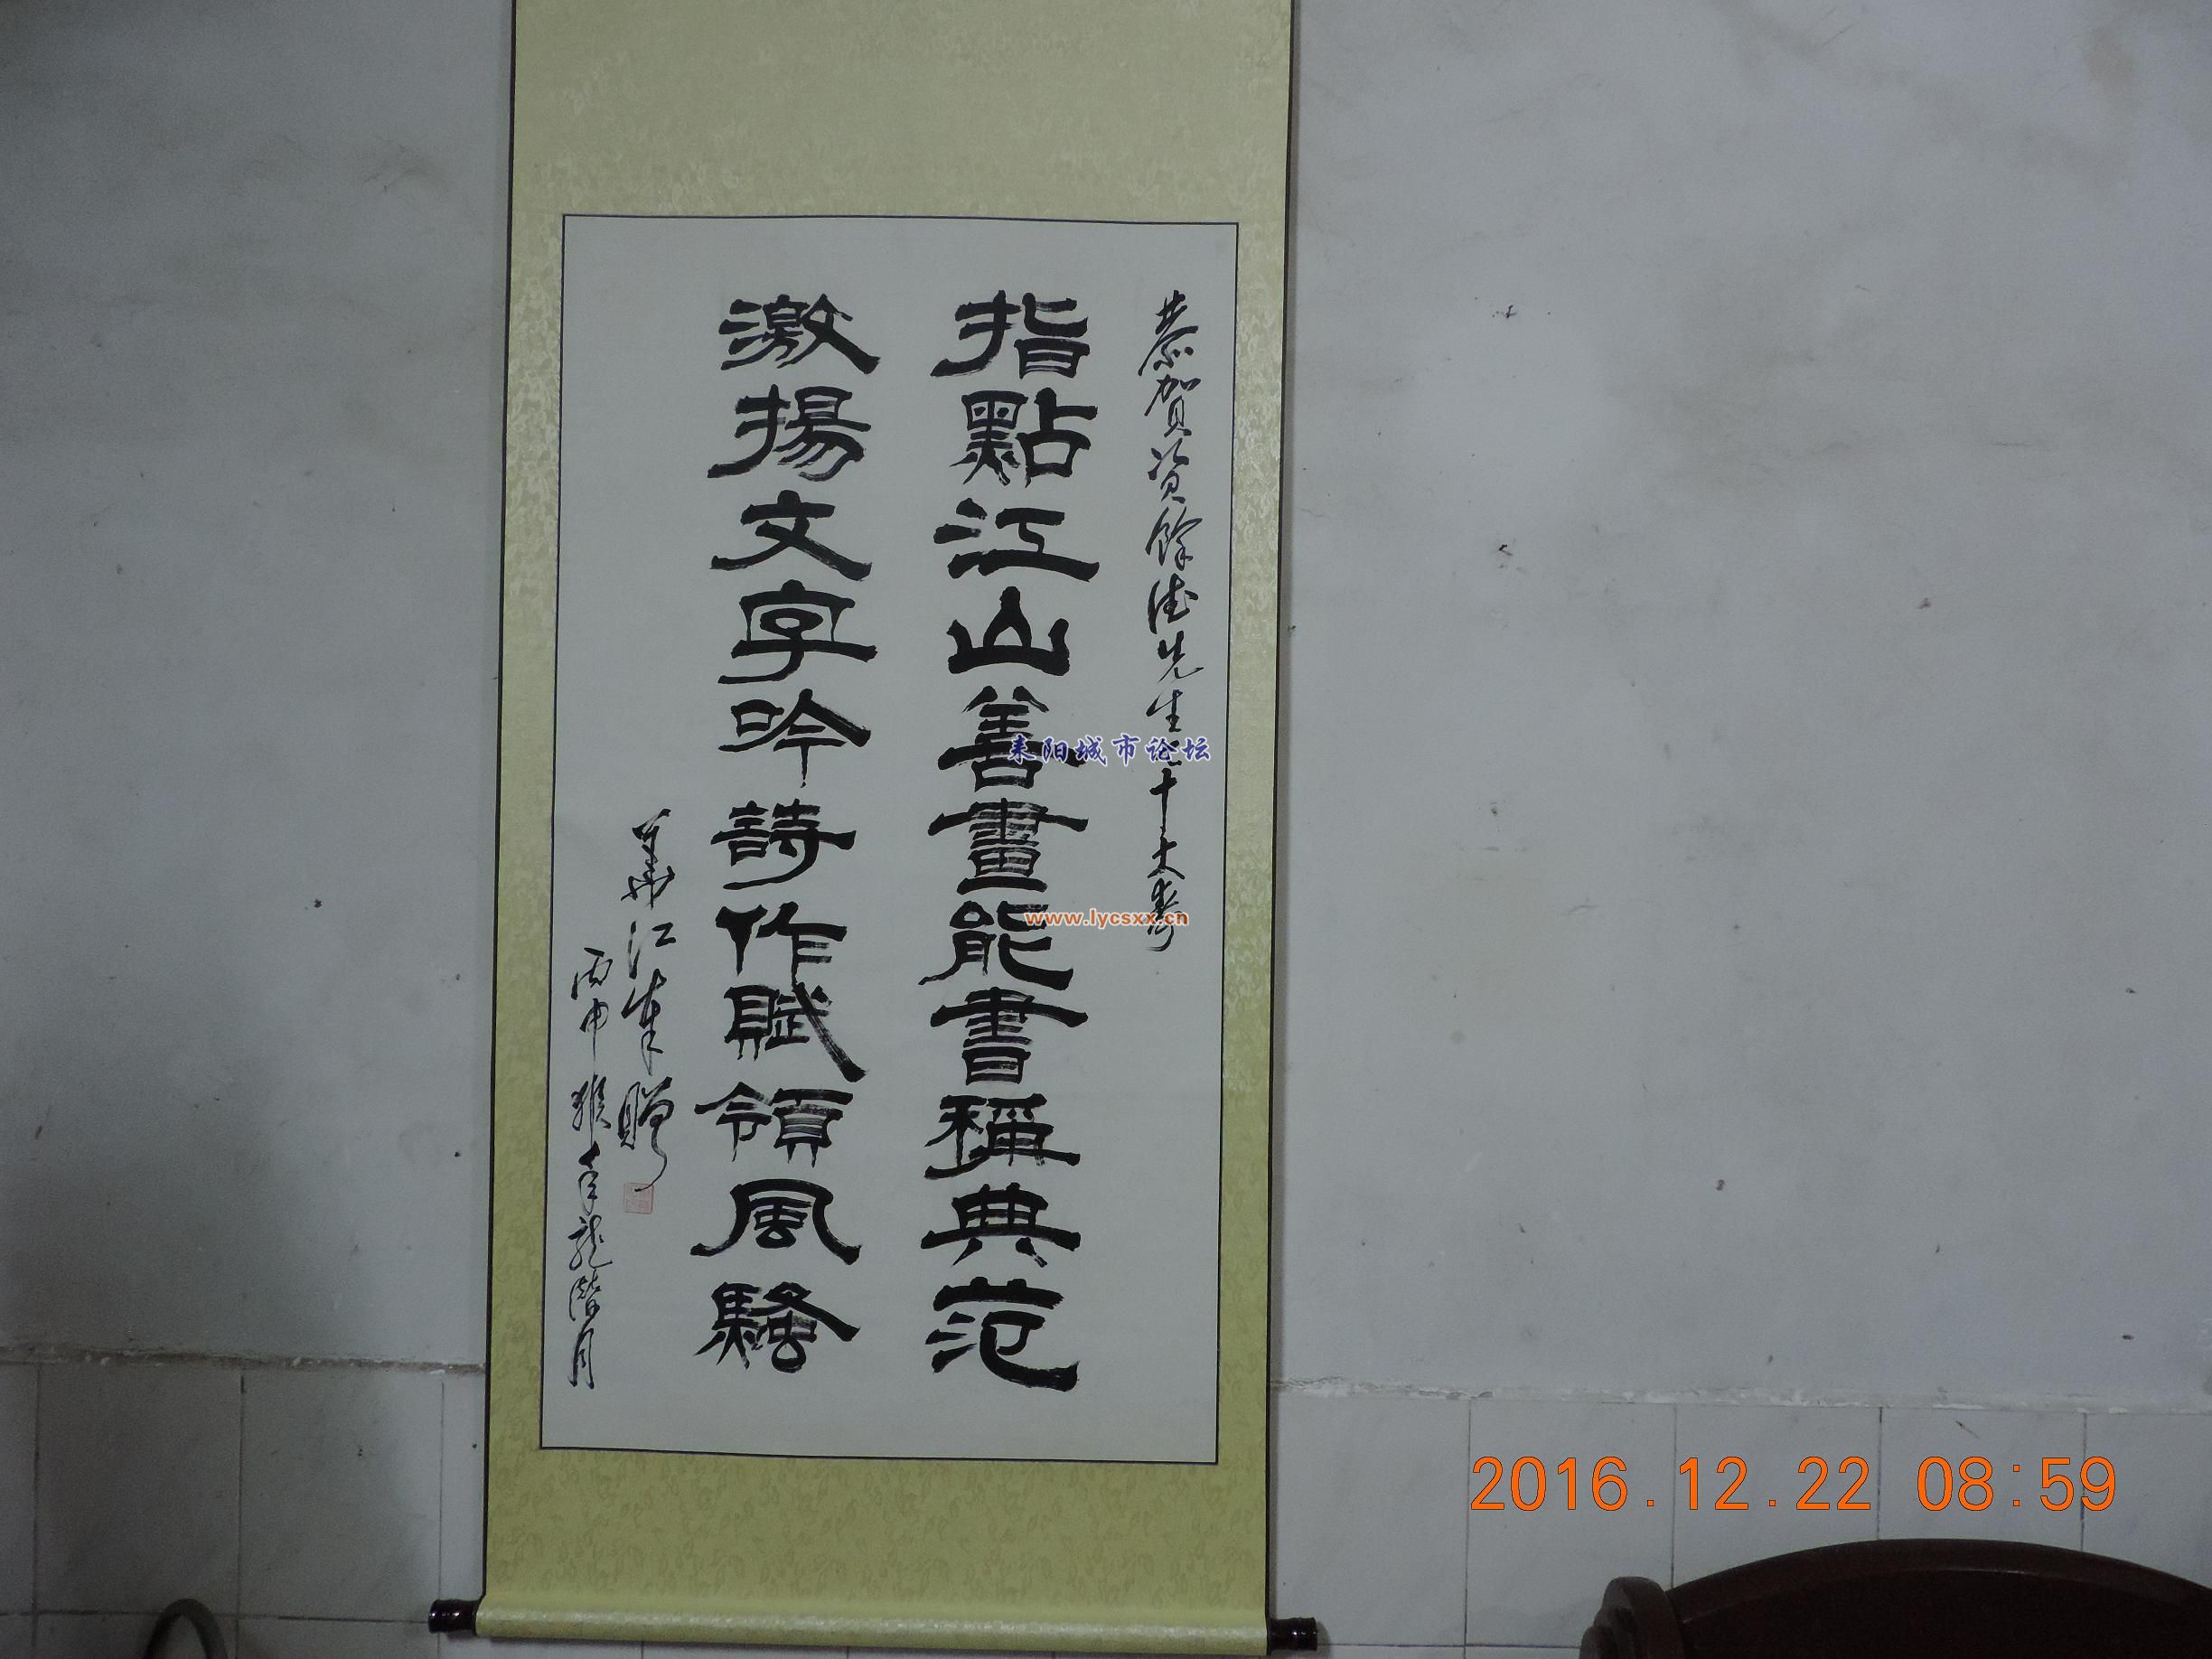 恭賀资餘德先生十大壽
指點江山善畫能書稱典范
激揚文字吟詩作賦領風騷
江奉贈
丙申猴年龍潛月
耒阳城市论坛
www.lycsxx.cn
2016.12.22 08:59